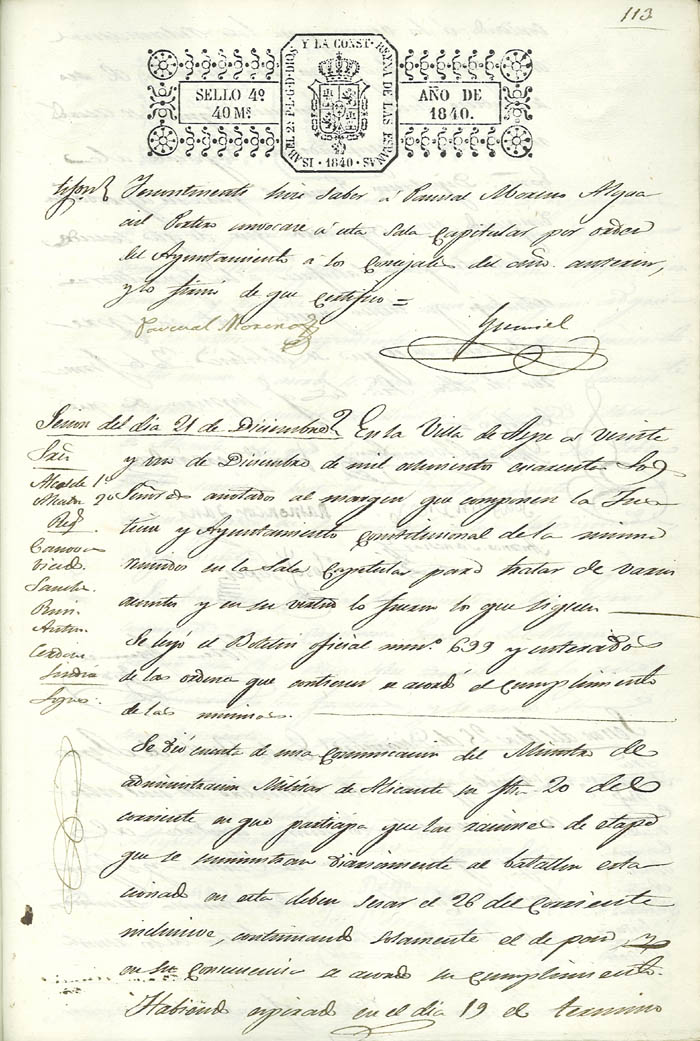 113
SELLO 4º
40 Mˢ
ISABEL 2ª P. L. G. D. DIOS Y LA CONST. REYNA DE LAS ESPAÑAS · 1840 ·
AÑO DE
1840.
hice saber á Pascual Moreno Alguacil
Portero convocare á esta Sala Capitular por orden
del Ayuntamiento a los Concejales del año anterior,
y lo firmó de que certifico =
Pascual Moreno
Gumiel
Sesion del dia 21 de Diciembre En la Villa de Aspe a veinte
y uno de Diciembre de mil ochocientos cuarenta Los
Señores anotados al margen que componen la Jus
ticia y Ayuntamiento Constitucional de la misma
reunidos en la Sala Capitular para tratar de varios
asuntos y en su vista lo fueron lo que siguen
Sres
Alcalde 1º
Alcalde 2º
Reg
Canovas
Vicedo
Sanchez
Ruiz
Anton
Cerdan
Sindico
Se leyó el Boletin oficial num.º 699 y enterados
de las ordenes que contienen se acordó el cumplimiento
de las mismas.
Se dió cuenta de una Comunicacion del Ministro de
administracion Militar de Alicante su fha 20 del
corriente en que participa que las raciones de etapa
que se suministran diariamente al batallon esta
cionado en esta deben cesar el 26 del Corriente
inclusive, continuando solamente el de pan y
en su consecuencia se acordó su cumplimiento.
Habiendo espirado en el dia 19 el termino